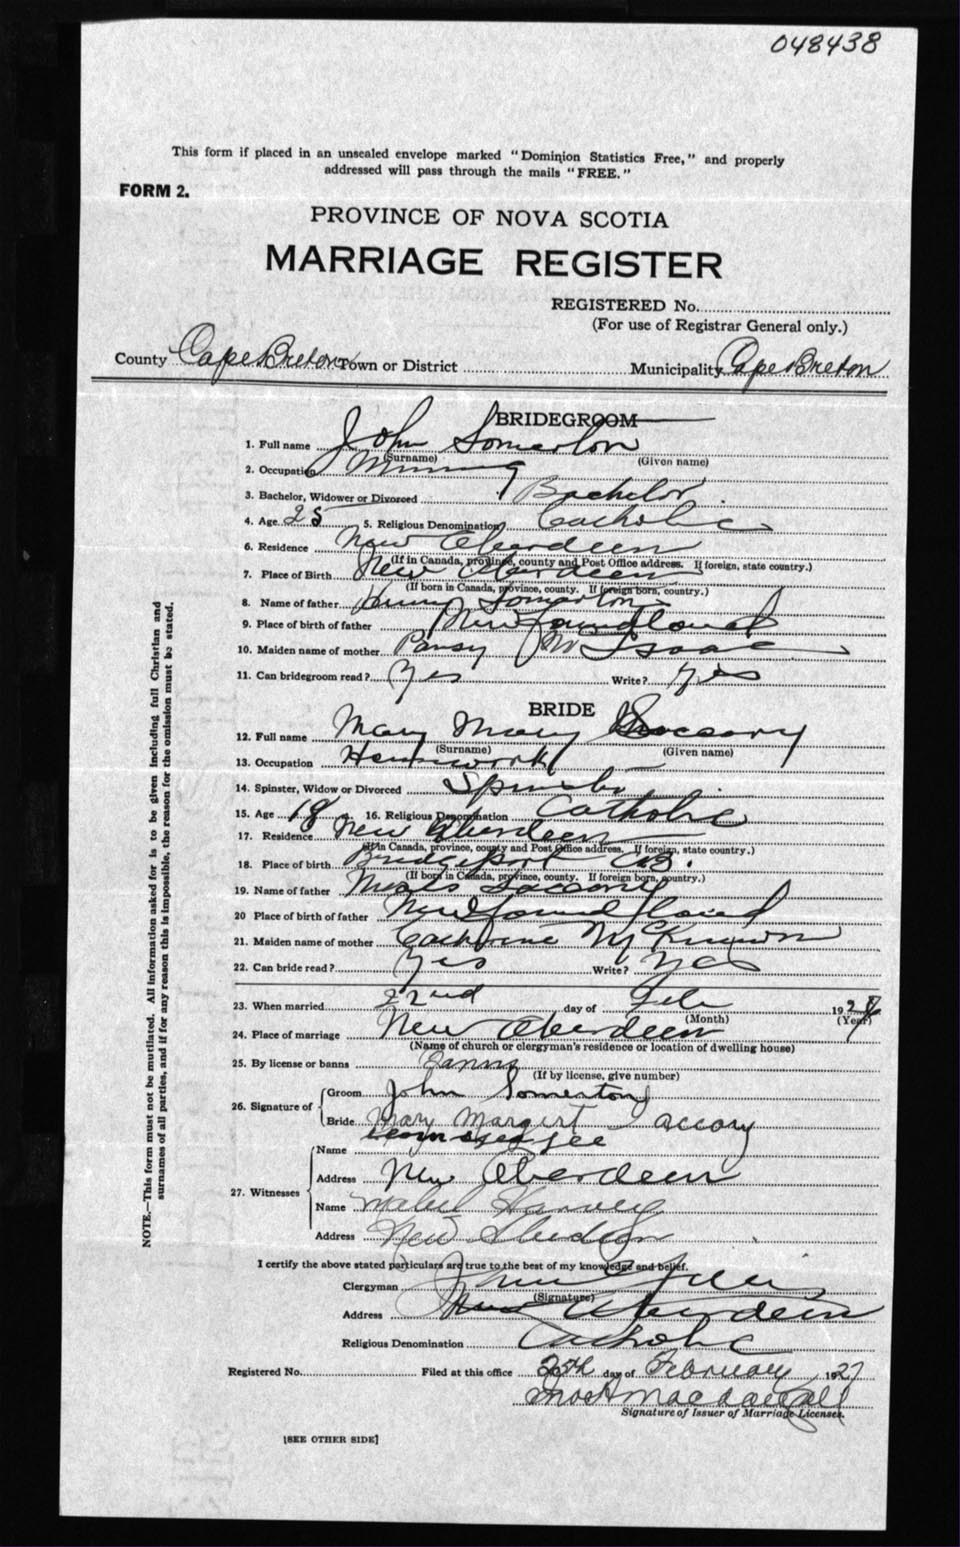 048438
This form if placed in an unsealed envelope marked "Dominion Statistics Free," and properly
addressed will pass through the mails "FREE."
FORM 2.
PROVINCE OF NOVA SCOTIA
MARRIAGE REGISTER
REGISTERED No.
(For use of Registrar General only.)
County Cape Breton Town or District Municipality Cape Breton
BRIDEGROOM
1. Full name John Somerton
(Surname) (Given name)
2. Occupation Mining
3. Bachelor, Widower or Divorced Bachelor
4. Age 25 5. Religious Denomination Catholic
6. Residence New Aberdeen
(If in Canada, province, county and Post Office address. If foreign, state country.)
7. Place of Birth New Aberdeen
(If born in Canada, province, county. If foreign born, country.)
8. Name of father Somerton
9. Place of birth of father Newfoundland
10. Maiden name of mother Pansy McIsaac
11. Can bridegroom read? Yes Write? Yes
BRIDE
12. Full name Mary Mary
(Surname) (Given name)
13. Occupation Housework
14. Spinster, Widow or Divorced Spinster
15. Age 18 16. Religious Denomination Catholic
17. Residence New Aberdeen
(If in Canada, province, county and Post Office address. If foreign, state country.)
18. Place of birth Bridgeport C.B.
(If born in Canada, province, county. If foreign born, country.)
19. Name of father
20 Place of birth of father Newfoundland
21. Maiden name of mother Catherine
22. Can bride read? Yes Write? Yes
23. When married 22nd day of Feb 192
(Month) (Year)
24. Place of marriage New Aberdeen
(Name of church or clergyman's residence or location of dwelling house)
25. By license or banns Banns
(If by license, give number)
26. Signature of Groom John Somerton
Bride Mary Margert Saccary
27. Witnesses
Name
Address New Aberdeen
Name Mabel Harvey
Address New Aberdeen
I certify the above stated particulars are true to the best of my knowledge and belief.
Clergyman
(Signature)
Address New Aberdeen
Religious Denomination Catholic
Registered No. Filed at this office 25th day of February 1927
Signature of Issuer of Marriage Licenses.
[SEE OTHER SIDE]
NOTE.—This form must not be mutilated. All information asked for is to be given including full Christian and
surnames of all parties, and if for any reason this is impossible, the reason for the omission must be stated.